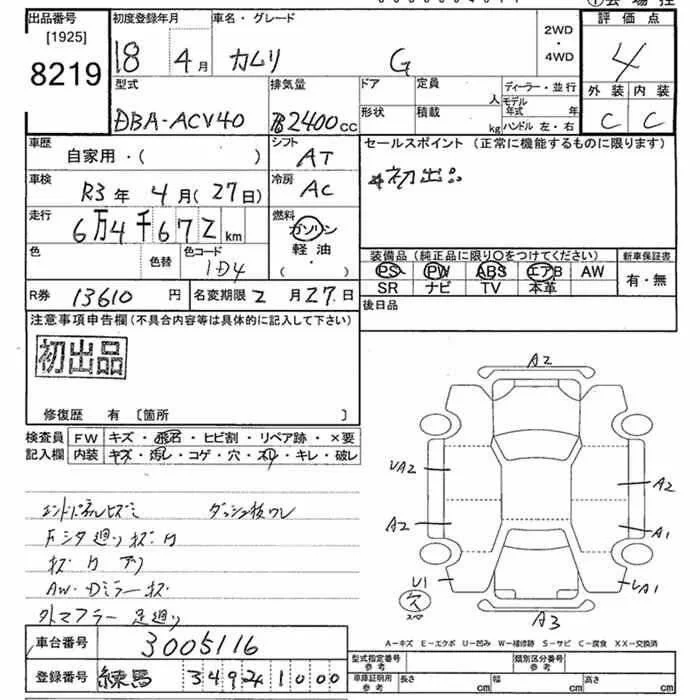 出品番号 初度登録年月 車名・グレード 2WD・4WD 評価点
[1925]
8219 18 4月 カムリ G 4
型式 排気量 ドア 定員 人 ディーラー・並行 外装 内装
DBA-ACV40 2400cc 形状 積載 kg モデル年式 年 ハンドル 左・右 C C
車歴 自家用・( ) シフト AT セールスポイント (正常に機能するものに限ります)
初出品
車検 R3年 4月(27日) 冷房 AC
走行 6万4千672km 燃料 ガソリン・軽油・( )
色 色替 色コード 1D4
装備品(純正品に限り〇をつけてください) 新車保証書
PS PW ABS エアB AW 有・無
SR ナビ TV 本革
R券 13610円 名変期限 2月27日 後日品
注意事項申告欄(不具合内容等は具体的に記入して下さい)
初出品
修復歴 有 〔箇所 〕
検査員 FW キズ・飛石・ヒビ割・リペア跡・×要
記入欄 内装 キズ・汚レ・コゲ・穴・スリ・キレ・破レ
エンドパネルヒズミ ダッシュ板ワレ
AW・Dミラーキズ
A2
UA2
A2
A2
A1
U1
欠
スペ
A3
UA1
A-キズ E-エクボ U-凹み W-補修跡 S-サビ C-腐食 XX-交換済
車台番号 3005116
登録番号 練馬 349 る 1000
型式指定番号 参考 類別区分番号 参考
車庫証明用 参考 長さ cm 幅 cm 高さ cm